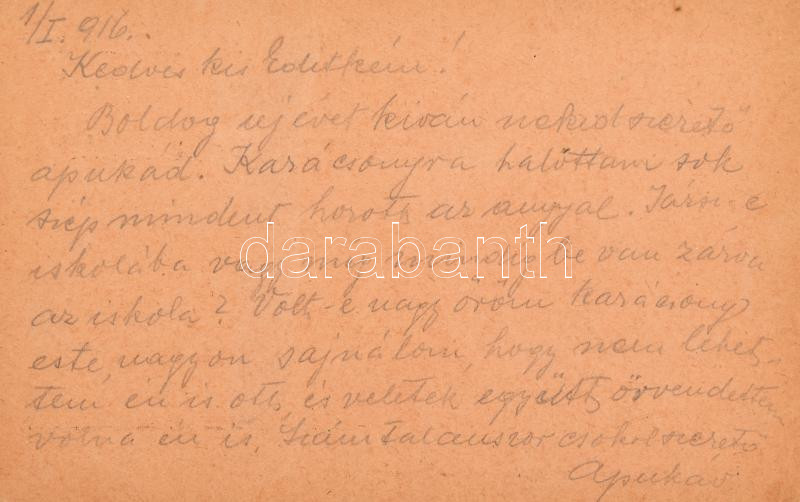 1/I. 916.
Kedves kis Editkém!
Boldog uj évet kiván neked szerető
apukád. Karácsonyra hallottam sok
szép mindent hozott az angyal. Jársz-e
iskolába vagy még mindig be van zárva
az iskola? Volt-e nagy öröm karácsony
este, nagyon sajnálom, hogy nem lehet-
tem én is ott, és veletek együtt örvendettem
volna én is. Számtalanszor csókol szerető
Apukád
darabanth